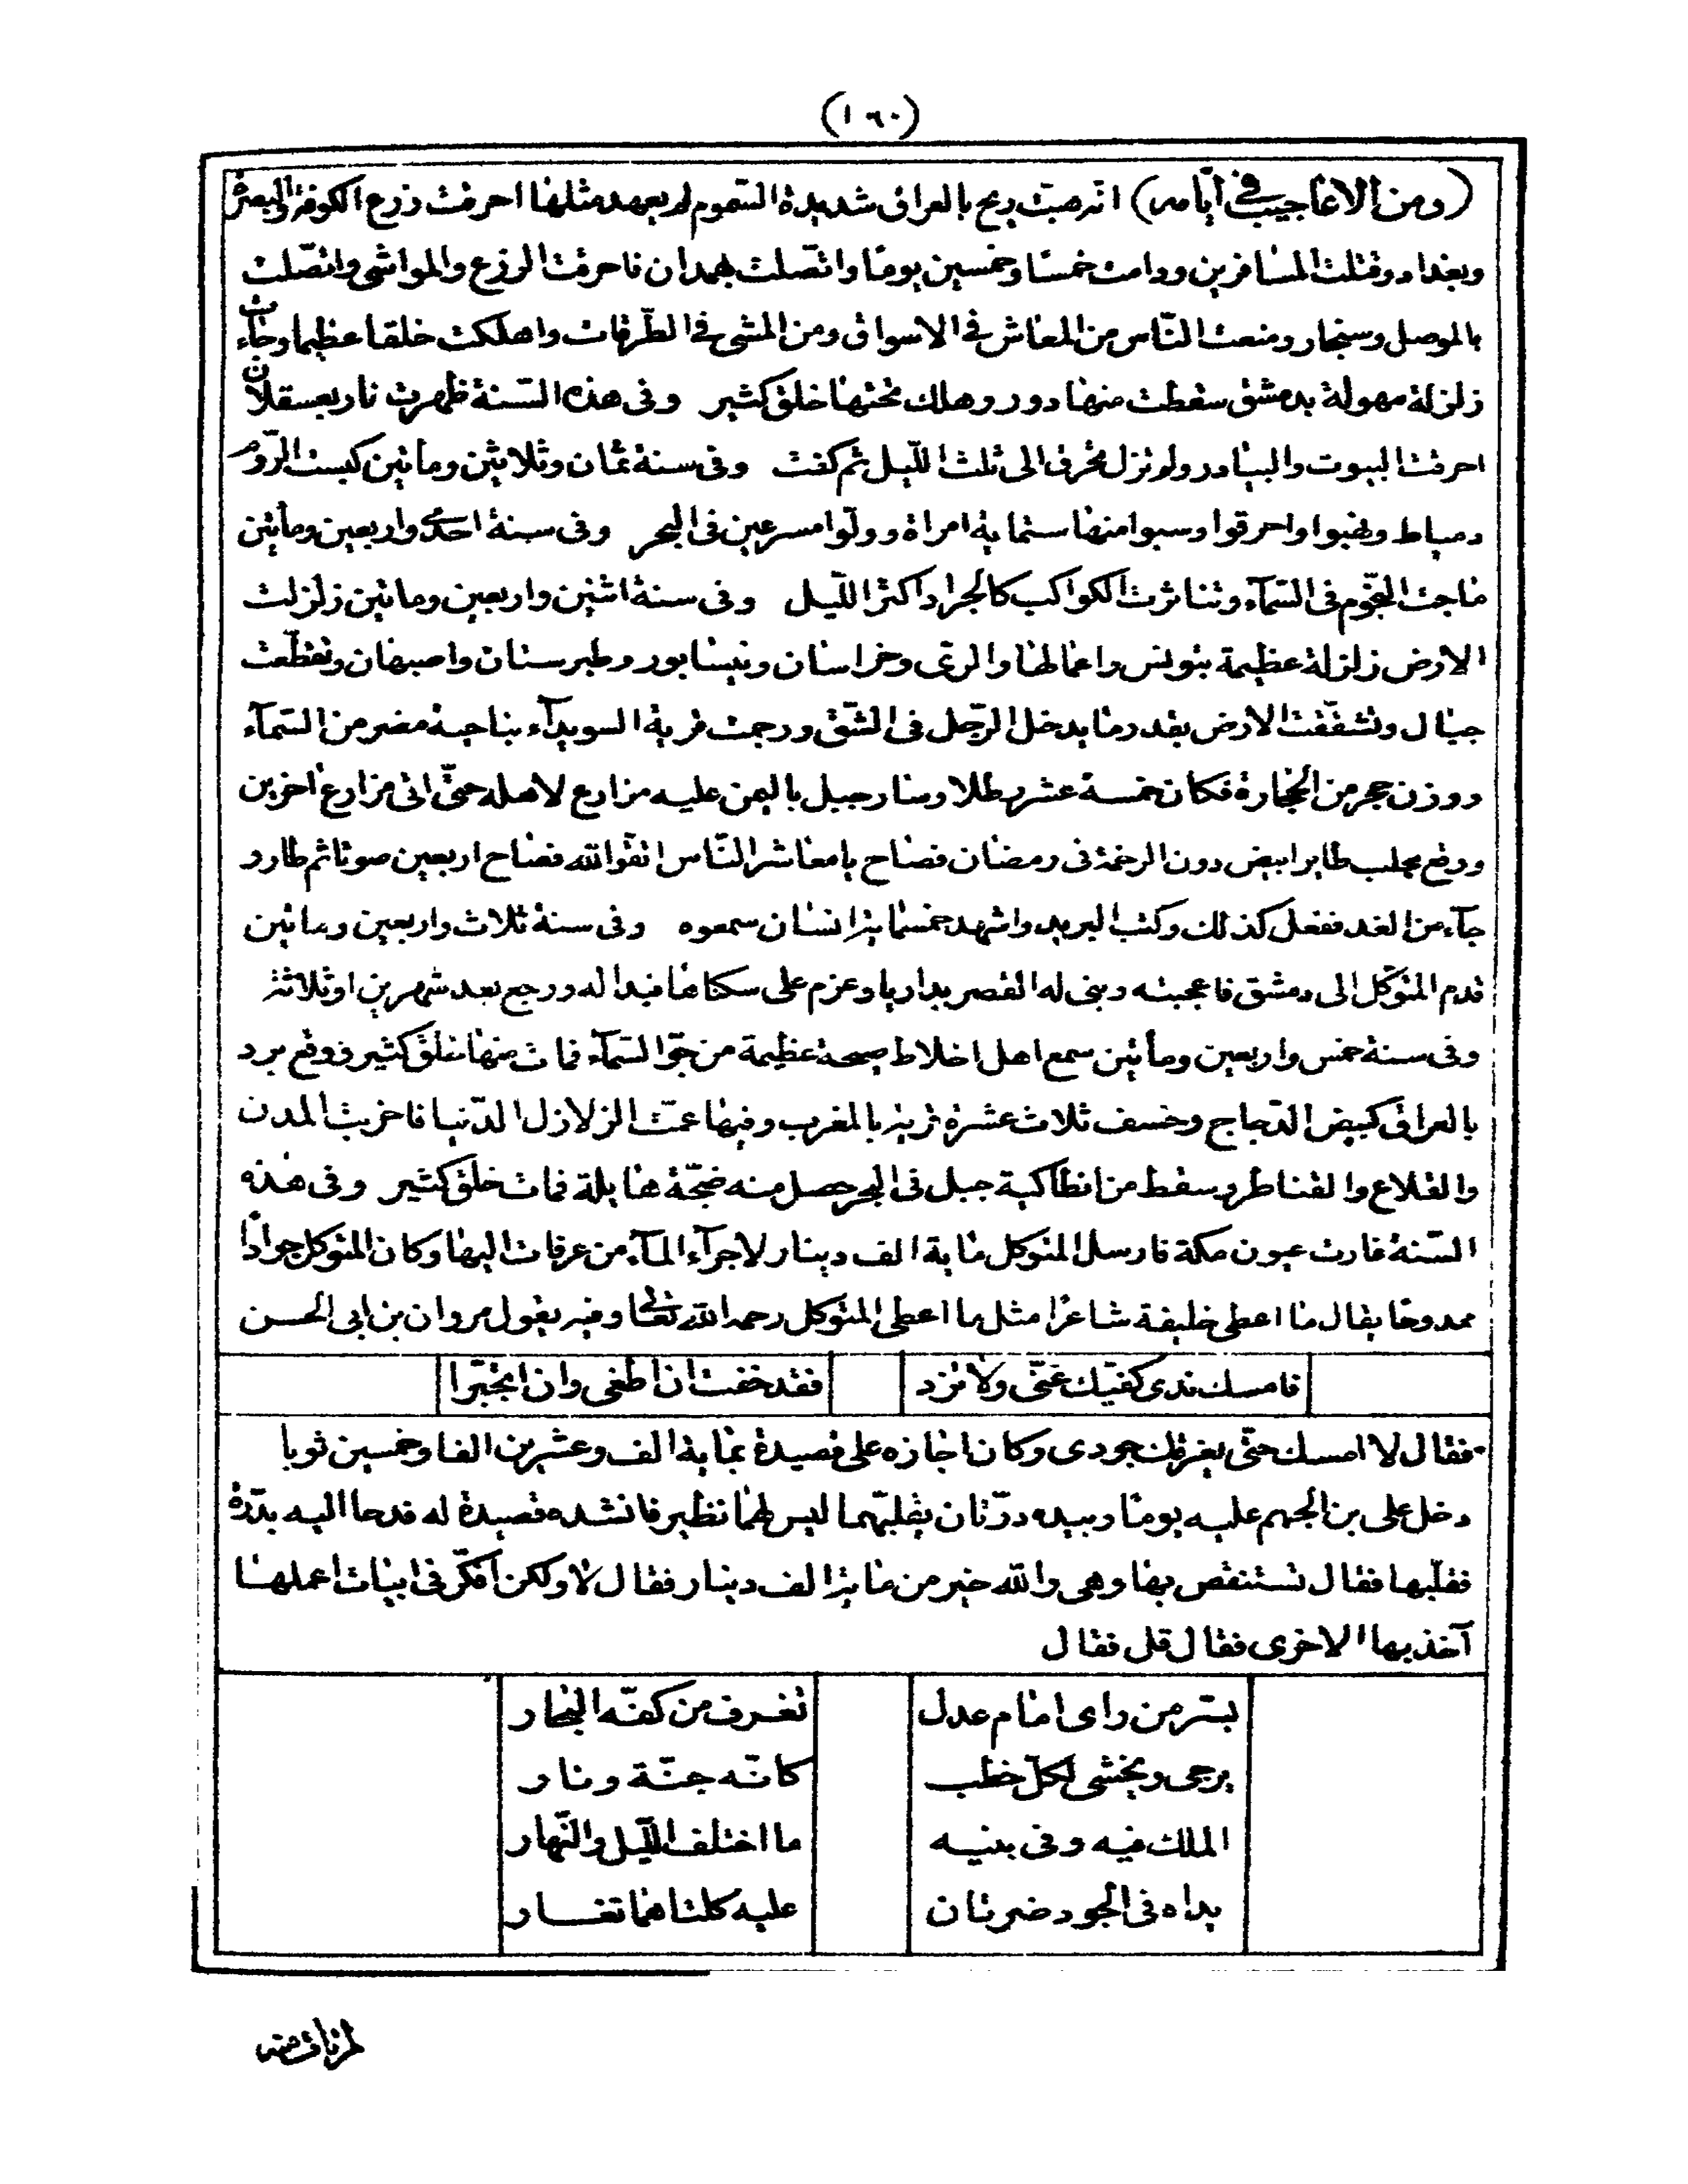 (١٦٠)
(ومن الاعاجيب في ايّامه) انّه هبت ريح بالعراق شديدة السّموم لم يعهد مثلها احرقت زرع الكوفة والبصرة
وبغداد وقتلت المسافرين ودامت خمسًا وخمسين يومًا واتّصلت بهمدان فاحرقت الزرع والمواشى واتّصلت
بالموصل وسنجار ومنعت النّاس من المعاش في الاسواق ومن المشى في الطّرقات واهلكت خلقا عظيما وجاءت
زلزلة مهولة بدمشق سقطت منها دور وهلك تحتها خلق كثير وفى هذه السّنة ظهرت نار بعسقلان
احرقت البيوت والبيادر ولم تزل تحرق الى ثلث اللّيل ثم كفت وفى سنة ثمان وثلاثين ومأتين كبست الرّوم
دمياط ونهبوا واحرقوا وسبوا منها ستماية امراة وولّوا مسرعين فى البحر وفى سنة احدى واربعين ومأتين
ماجت النّجوم فى السّمآء وتناثرت الكواكب كالجراد اكثر اللّيل وفى سنة اثنين واربعين ومأتين زلزلت
الارض زلزلة عظيمة بتونس واعمالها والرى وخراسان ونيسابور وطبرستان واصبهان وتقطّعت
جبال وتشقّقت الارض بقدر ما يدخل الرّجل فى الشّق ورجمت قرية السويدآء بناحية مضر من السّمآء
ووزن حجر من الحجارة فكان خمسة عشر رطلا وسار جبل باليمن عليه مزارع لاهله حتّى اتى مزارع اخرين
ووقع بحلب طاير ابيض دون الرخمة فى رمضان فصاح يا معاشر النّاس اتقوا الله فصاح اربعين صوتا ثم طار و
جآء من الغد ففعل كذلك وكتب البريد واشهد خمسماية انسان سمعوه وفى سنة ثلاث واربعين ومأتين
قدم المتوكّل الى دمشق فاعجبته وبنى له القصر بداريا وعزم على سكناها فبدا له ورجع بعد شهرين او ثلاثة
وفى سنة خمس واربعين ومأتين سمع اهل اخلاط صيحة عظيمة من جوّ السّمآء فمات منها خلق كثير ووقع برد
بالعراق كبيض الدّجاج وخسف ثلاث عشرة قرية بالمغرب وفيها عمّت الزلازل الدّنيا فاخربت المدن
والقلاع والقناطر وسقط من انطاكية جبل فى البحر حصل منه ضجّة هايلة فمات خلق كثير وفى هذه
السّنة غارت عيون مكة فارسل المتوكل ماية الف دينار لاجرآء المآء من عرفات اليها وكان المتوكل جوادًا
ممدوحًا يقال ما اعطى خليفة شاعرًا مثل ما اعطى المتوكل رحمه الله تعالى وفيه يقول مروان بن ابى الحسن
فامسك ندى كفّيك عنّى ولا تزد فقد خفت ان اطغى وان اتجبّرا
فقال لا امسك حتّى يغرقك جودى وكان اجازه على قصيدة بماية الف وعشرين الفا وخمسين ثوبا
دخل على بن الجهم عليه يومًا وبيده درّتان يقلبّهما ليس لهما نظير فانشده قصيدة له فدحا اليه بدّرة
فقلّبها فقال تستنقص بها وهى والله خير من ماية الف دينار فقال لا ولكن افكّر فى ابيات اعملها
آخذ بها الاخرى فقال قل فقال
بسّر من راى امام عدل تغرف من كفّه البحار
يرجى ويخشى لكلّ خطب كانّه جنّة ونار
الملك فيه وفى بنيه ما اختلف اللّيل والنّهار
يداه فى الجود ضرتان عليه كلتاهما تغار
لم تأت منه